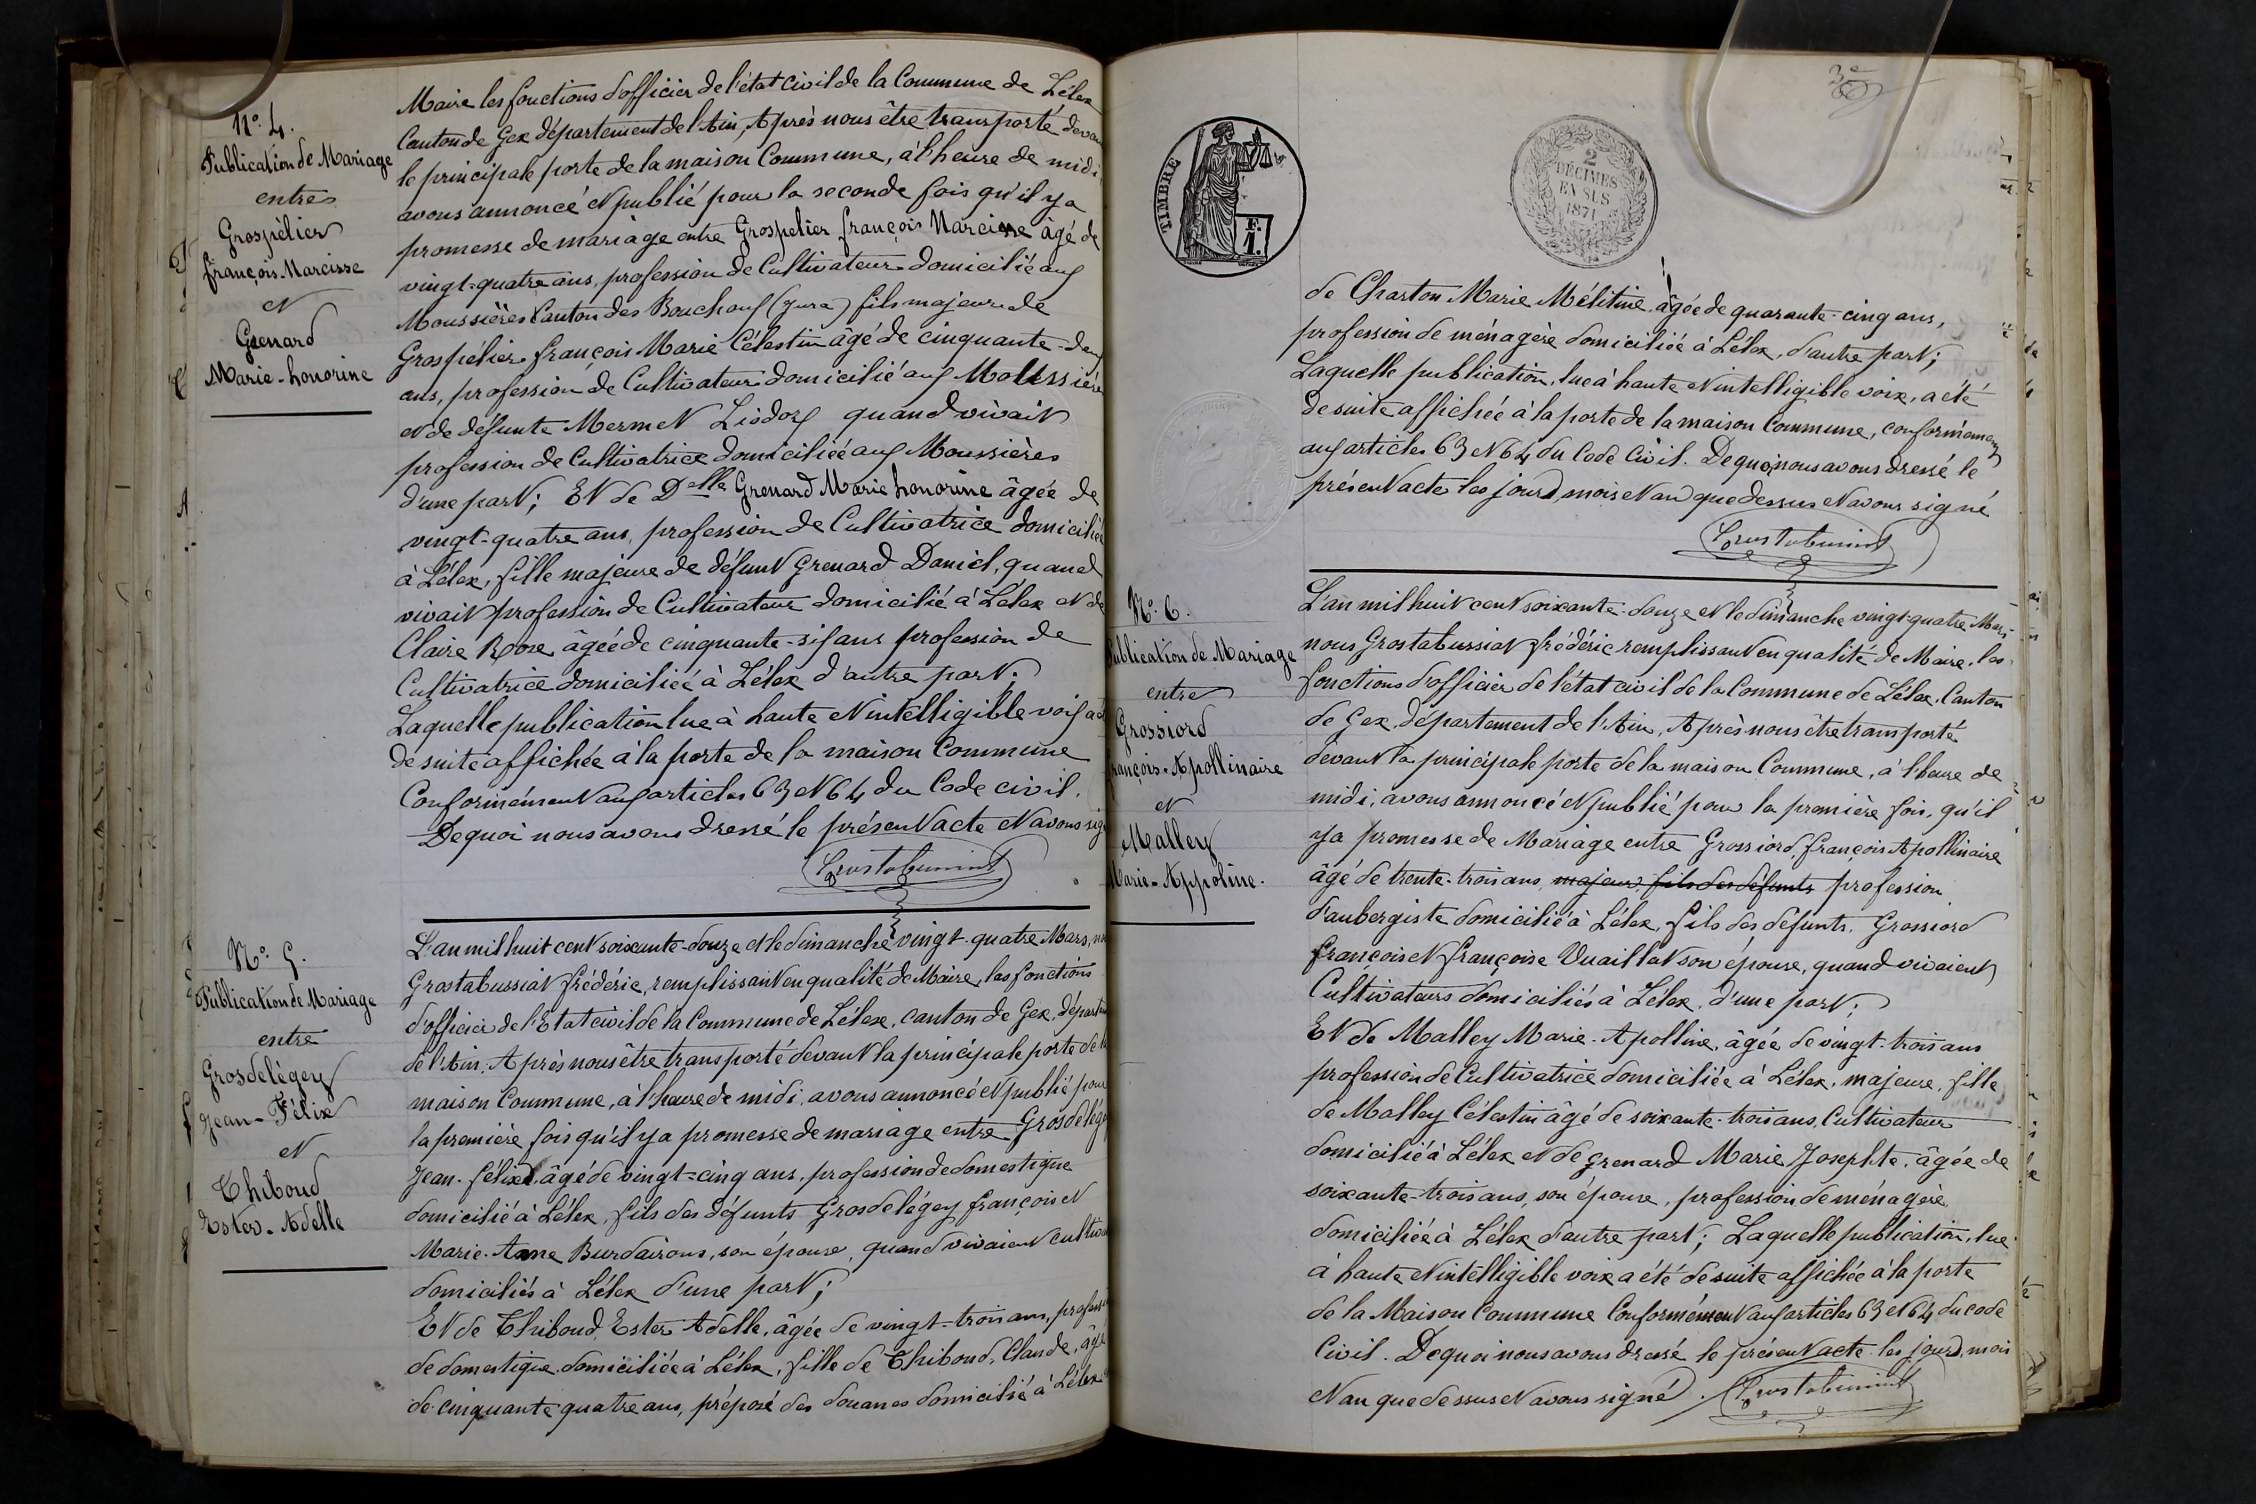 N° 4.
Publication de Mariage
entre
Grospélier
françois-Narcisse
et
Grenard
Marie-honorine
Maire les fonctions d'officier de l'état civil de la Commune de Lélex
Canton de Gex département de l'Ain, Après nous être transporté devan
le principale porte de la maison Commune, à l'heure de midi
avons annoncé et publié pour la seconde fois qu'il y a
promesse de mariage entre Grospelier françois Narcisse âgé de
vingt-quatre ans, profession de Cultivateur domicilié aux
Moussières Canton des Bouchoux (Jura) fils majeur de
Grospélier françois Marie Célestin âgé de cinquante-deux
ans, profession de Cultivateur domicilié aux Moussière
et de défunte Mermet Lisdore quand vivait
profession de Cultivatrice domiciliée aux Moussières
d'une part; Et de Delle Grenard Marie honorine âgée de
vingt-quatre ans, profession de Cultivatrice domiciliée
à Lélex, fille majeure de défunt Grenard Daniel, quand
vivait profession de Cultivateur domicilié à Lélex et de
Claire Rose âgée de cinquante-six ans profession de
Cultivatrice domiciliée à Lélex d'autre part.
Laquelle publication lue à haute et intelligible voix a
de suite affichée à la porte de la maison Commune
Conformément aux articles 63 et 64 du Code civil.
De quoi nous avons dressé le présent acte et avons sig
Grostabussiat
N° 5.
Publication de Mariage
entre
Grosdelégey
Jean-Félix
et
Thiboud
Ester-Adelle
L'an mil huit cent soixante-douze et le dimanche vingt-quatre Mars, no
Grostabussiat frédéric, remplissant en qualité de Maire, les fonctions
d'officier de l'Etat civil de la Commune de Lélex, canton de Gex, départ
de l'Ain. Après nous être transporté devant la principale porte de la
maison Commune, à l'heure de midi, avons annoncé et publié pour
la première fois qu'il y a promesse de mariage entre Grosdelég
Jean-félix, âgé de vingt-cinq ans, profession de domestique
domicilié à Lélex, fils des défunts Grosdelégey françois et
Marie-Anne Burdairons, son épouse, quand vivaient cultiva
domiciliés à Lélex d'une part;
Et de Thiboud, Ester Adelle, âgée de vingt-trois ans, profess
de domestique domiciliée à Lélex, fille de Thiboud, Claude, âg
de cinquante quatre ans, préposé des douanes domicilié à Lélex
TIMBRE
F.
1.
2
DÉCIMES
EN SUS
1871
de Charton Marie Mélitine, âgée de quarante-cinq ans,
profession de ménagère domiciliée à Lélex, d'autre part;
Laquelle publication, lue à haute et intelligible voix, a été
de suite affichée à la porte de la maison Commune, conformément
aux articles 63 et 64 du Code Civil. De quoi nous avons dressé le
présent acte les jour, mois et an que dessus et avons signé
Grostabussiat
N° 6.
Publication de Mariage
entre
Grossiord
rançois-Apollinaire
et
Malley
Marie-Appoline.
L'an mil huit cent soixante-douze et le dimanche vingt-quatre Mars
nous Grostabussiat frédéric remplissant en qualité de Maire, les
fonctions d'officier de l'état civil de la Commune de Lélex, Canton
de Gex, département de l'Ain, Après nous être transporté
devant la principale porte de la maison Commune, à l'heure de
midi, avons annoncé et publié pour la première fois, qu'il
y a promesse de Mariage entre Grossiord, françois Apollinaire
âgé de trente-trois ans, majeur, fils des défunts profession
d'aubergiste domicilié à Lélex, fils des défunts, Grossiord
françois et françoise Vuaillat son épouse, quand vivaient
Cultivateurs domiciliés à Lélex, d'une part;
Et de Malley Marie-Apolline, âgée de vingt-trois ans
profession de Cultivatrice domiciliée à Lélex, majeure, fille
de Malley Célestin âgé de soixante-trois ans, Cultivateur
domicilié à Lélex et de Grenard Marie Josephte, âgée de
soixante-trois ans, son épouse, profession de ménagère
domiciliée à Lélex d'autre part; Laquelle publication, lue
à haute et intelligible voix a été de suite affichée à la porte
de la Maison Commune Conformément aux articles 63 et 64 du code
Civil. De quoi nous avons dressé le présent acte les jour, mois
et an que dessus et avons signé. Grostabussiat